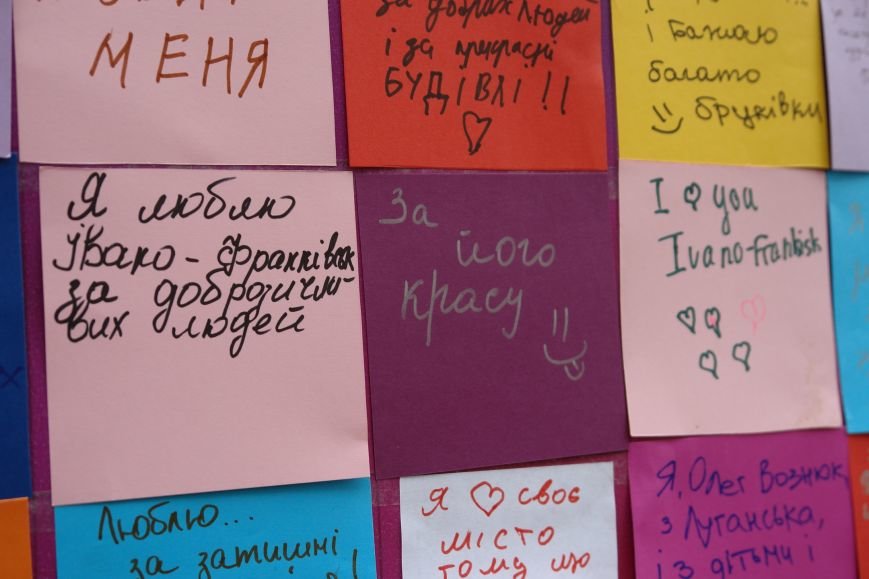 МЕНЯ
за добрах людей
і за прекрасні
БУДІВЛІ!!
і Бажаю
багато
бруківки
Я люблю
Івано-Франківськ
за доброзичли-
вих людей
За
його
красу
I you
Ivano-frankisk
Люблю...
за затишні
Я своє
місто
тому що
Я, Олег Вознюк,
з Луганська,
і з дітьми і